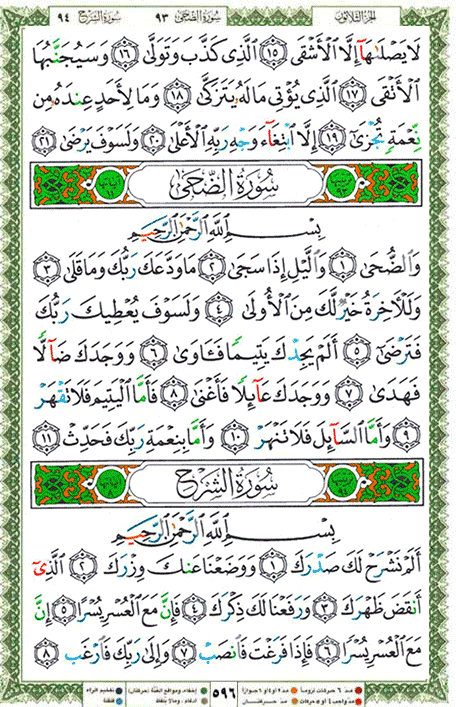 سورة الشرح ٩٤ سورة الضحى ٩٣ الجزء الثلاثون
لَا يَصْلَىٰهَآ إِلَّا ٱلْأَشْقَى ١٥ ٱلَّذِى كَذَّبَ وَتَوَلَّىٰ ١٦ وَسَيُجَنَّبُهَا
ٱلْأَتْقَى ١٧ ٱلَّذِى يُؤْتِى مَالَهُۥ يَتَزَكَّىٰ ١٨ وَمَا لِأَحَدٍ عِندَهُۥ مِن
نِّعْمَةٍ تُجْزَىٰٓ ١٩ إِلَّا ٱبْتِغَآءَ وَجْهِ رَبِّهِ ٱلْأَعْلَىٰ ٢٠ وَلَسَوْفَ يَرْضَىٰ ٢١
سُورَةُ الضُّحَى
بِسْمِ ٱللَّهِ ٱلرَّحْمَٰنِ ٱلرَّحِيمِ
وَٱلضُّحَىٰ ١ وَٱلَّيْلِ إِذَا سَجَىٰ ٢ مَا وَدَّعَكَ رَبُّكَ وَمَا قَلَىٰ ٣
وَلَلْأَخِرَةُ خَيْرٌ لَّكَ مِنَ ٱلْأُولَىٰ ٤ وَلَسَوْفَ يُعْطِيكَ رَبُّكَ
فَتَرْضَىٰٓ ٥ أَلَمْ يَجِدْكَ يَتِيمًا فَـَٔاوَىٰ ٦ وَوَجَدَكَ ضَآلًّا
فَهَدَىٰ ٧ وَوَجَدَكَ عَآئِلًا فَأَغْنَىٰ ٨ فَأَمَّا ٱلْيَتِيمَ فَلَا تَقْهَرْ
٩ وَأَمَّا ٱلسَّآئِلَ فَلَا تَنْهَرْ ١٠ وَأَمَّا بِنِعْمَةِ رَبِّكَ فَحَدِّثْ ١١
سُورَةُ الشَّرْحِ
بِسْمِ ٱللَّهِ ٱلرَّحْمَٰنِ ٱلرَّحِيمِ
أَلَمْ نَشْرَحْ لَكَ صَدْرَكَ ١ وَوَضَعْنَا عَنكَ وِزْرَكَ ٢ ٱلَّذِىٓ
أَنقَضَ ظَهْرَكَ ٣ وَرَفَعْنَا لَكَ ذِكْرَكَ ٤ فَإِنَّ مَعَ ٱلْعُسْرِ يُسْرًا ٥ إِنَّ
مَعَ ٱلْعُسْرِ يُسْرًا ٦ فَإِذَا فَرَغْتَ فَٱنصَبْ ٧ وَإِلَىٰ رَبِّكَ فَٱرْغَب ٨
٥٩٦